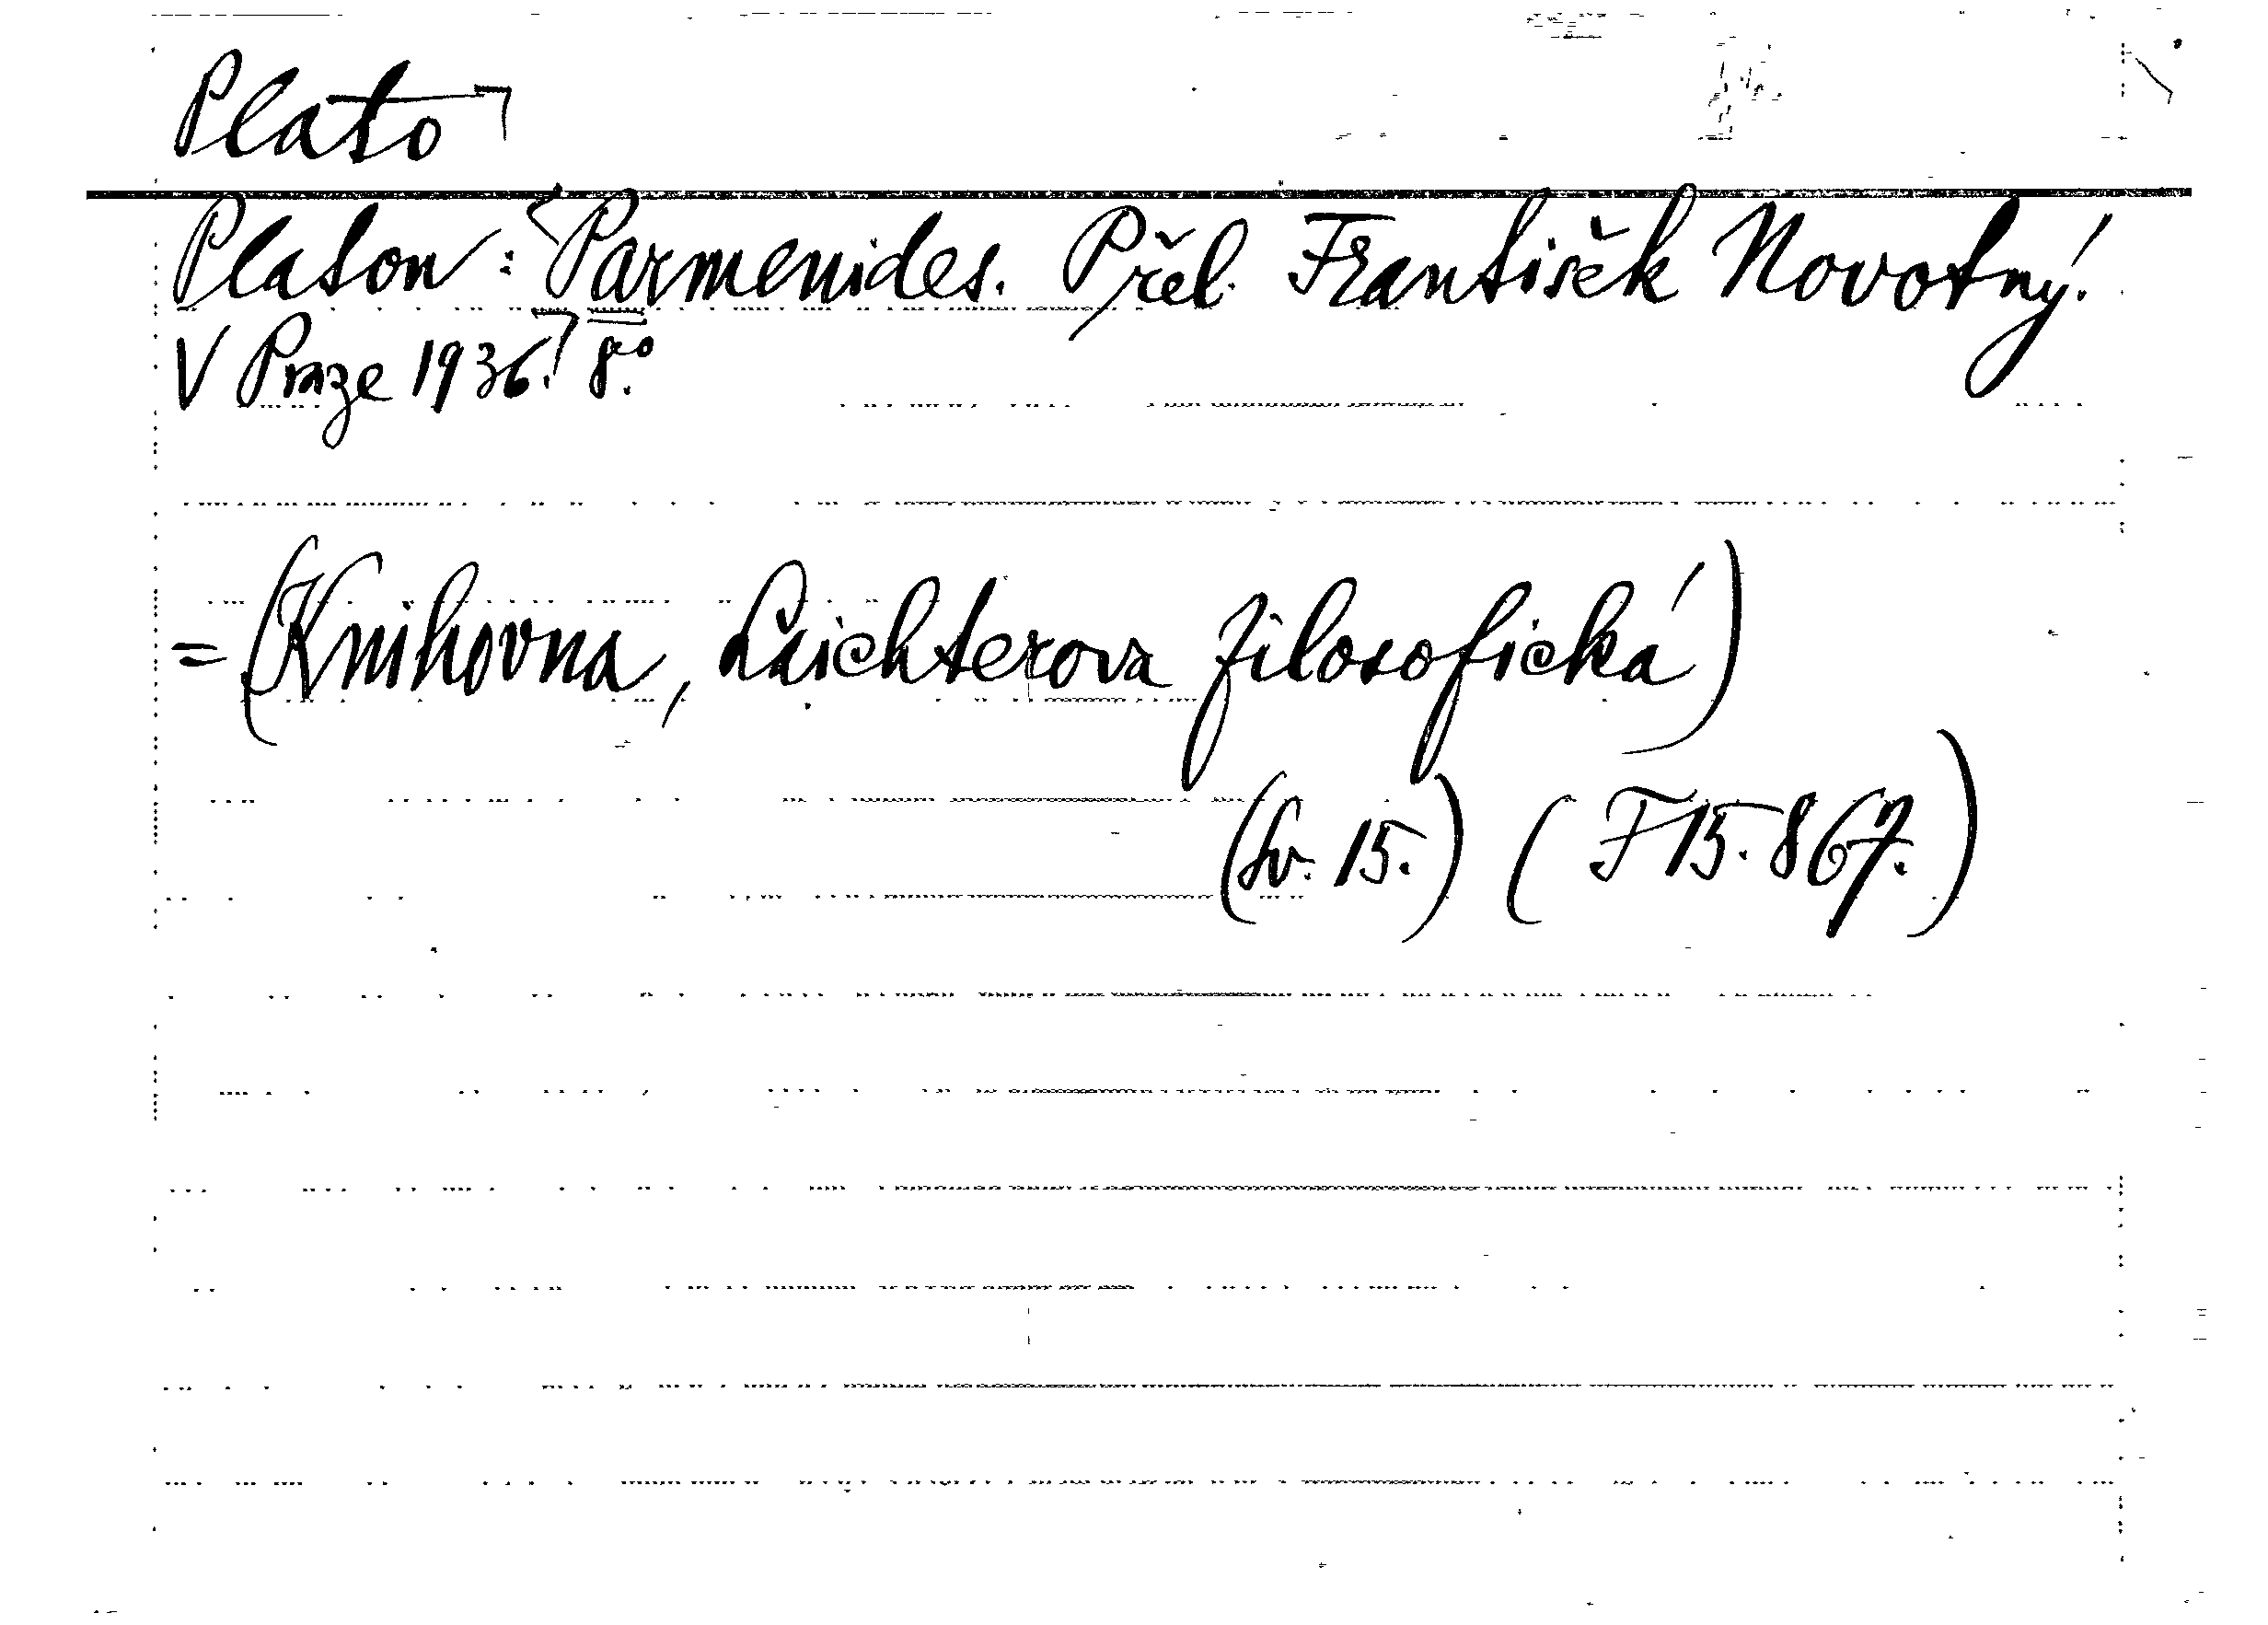 Plato
Platon: Parmenides. Přel. František Novotný.
V Praze 1936. 8°.
= (Knihovna, Laichterova filosofická)
(Sv. 15.) (F 15.867.)